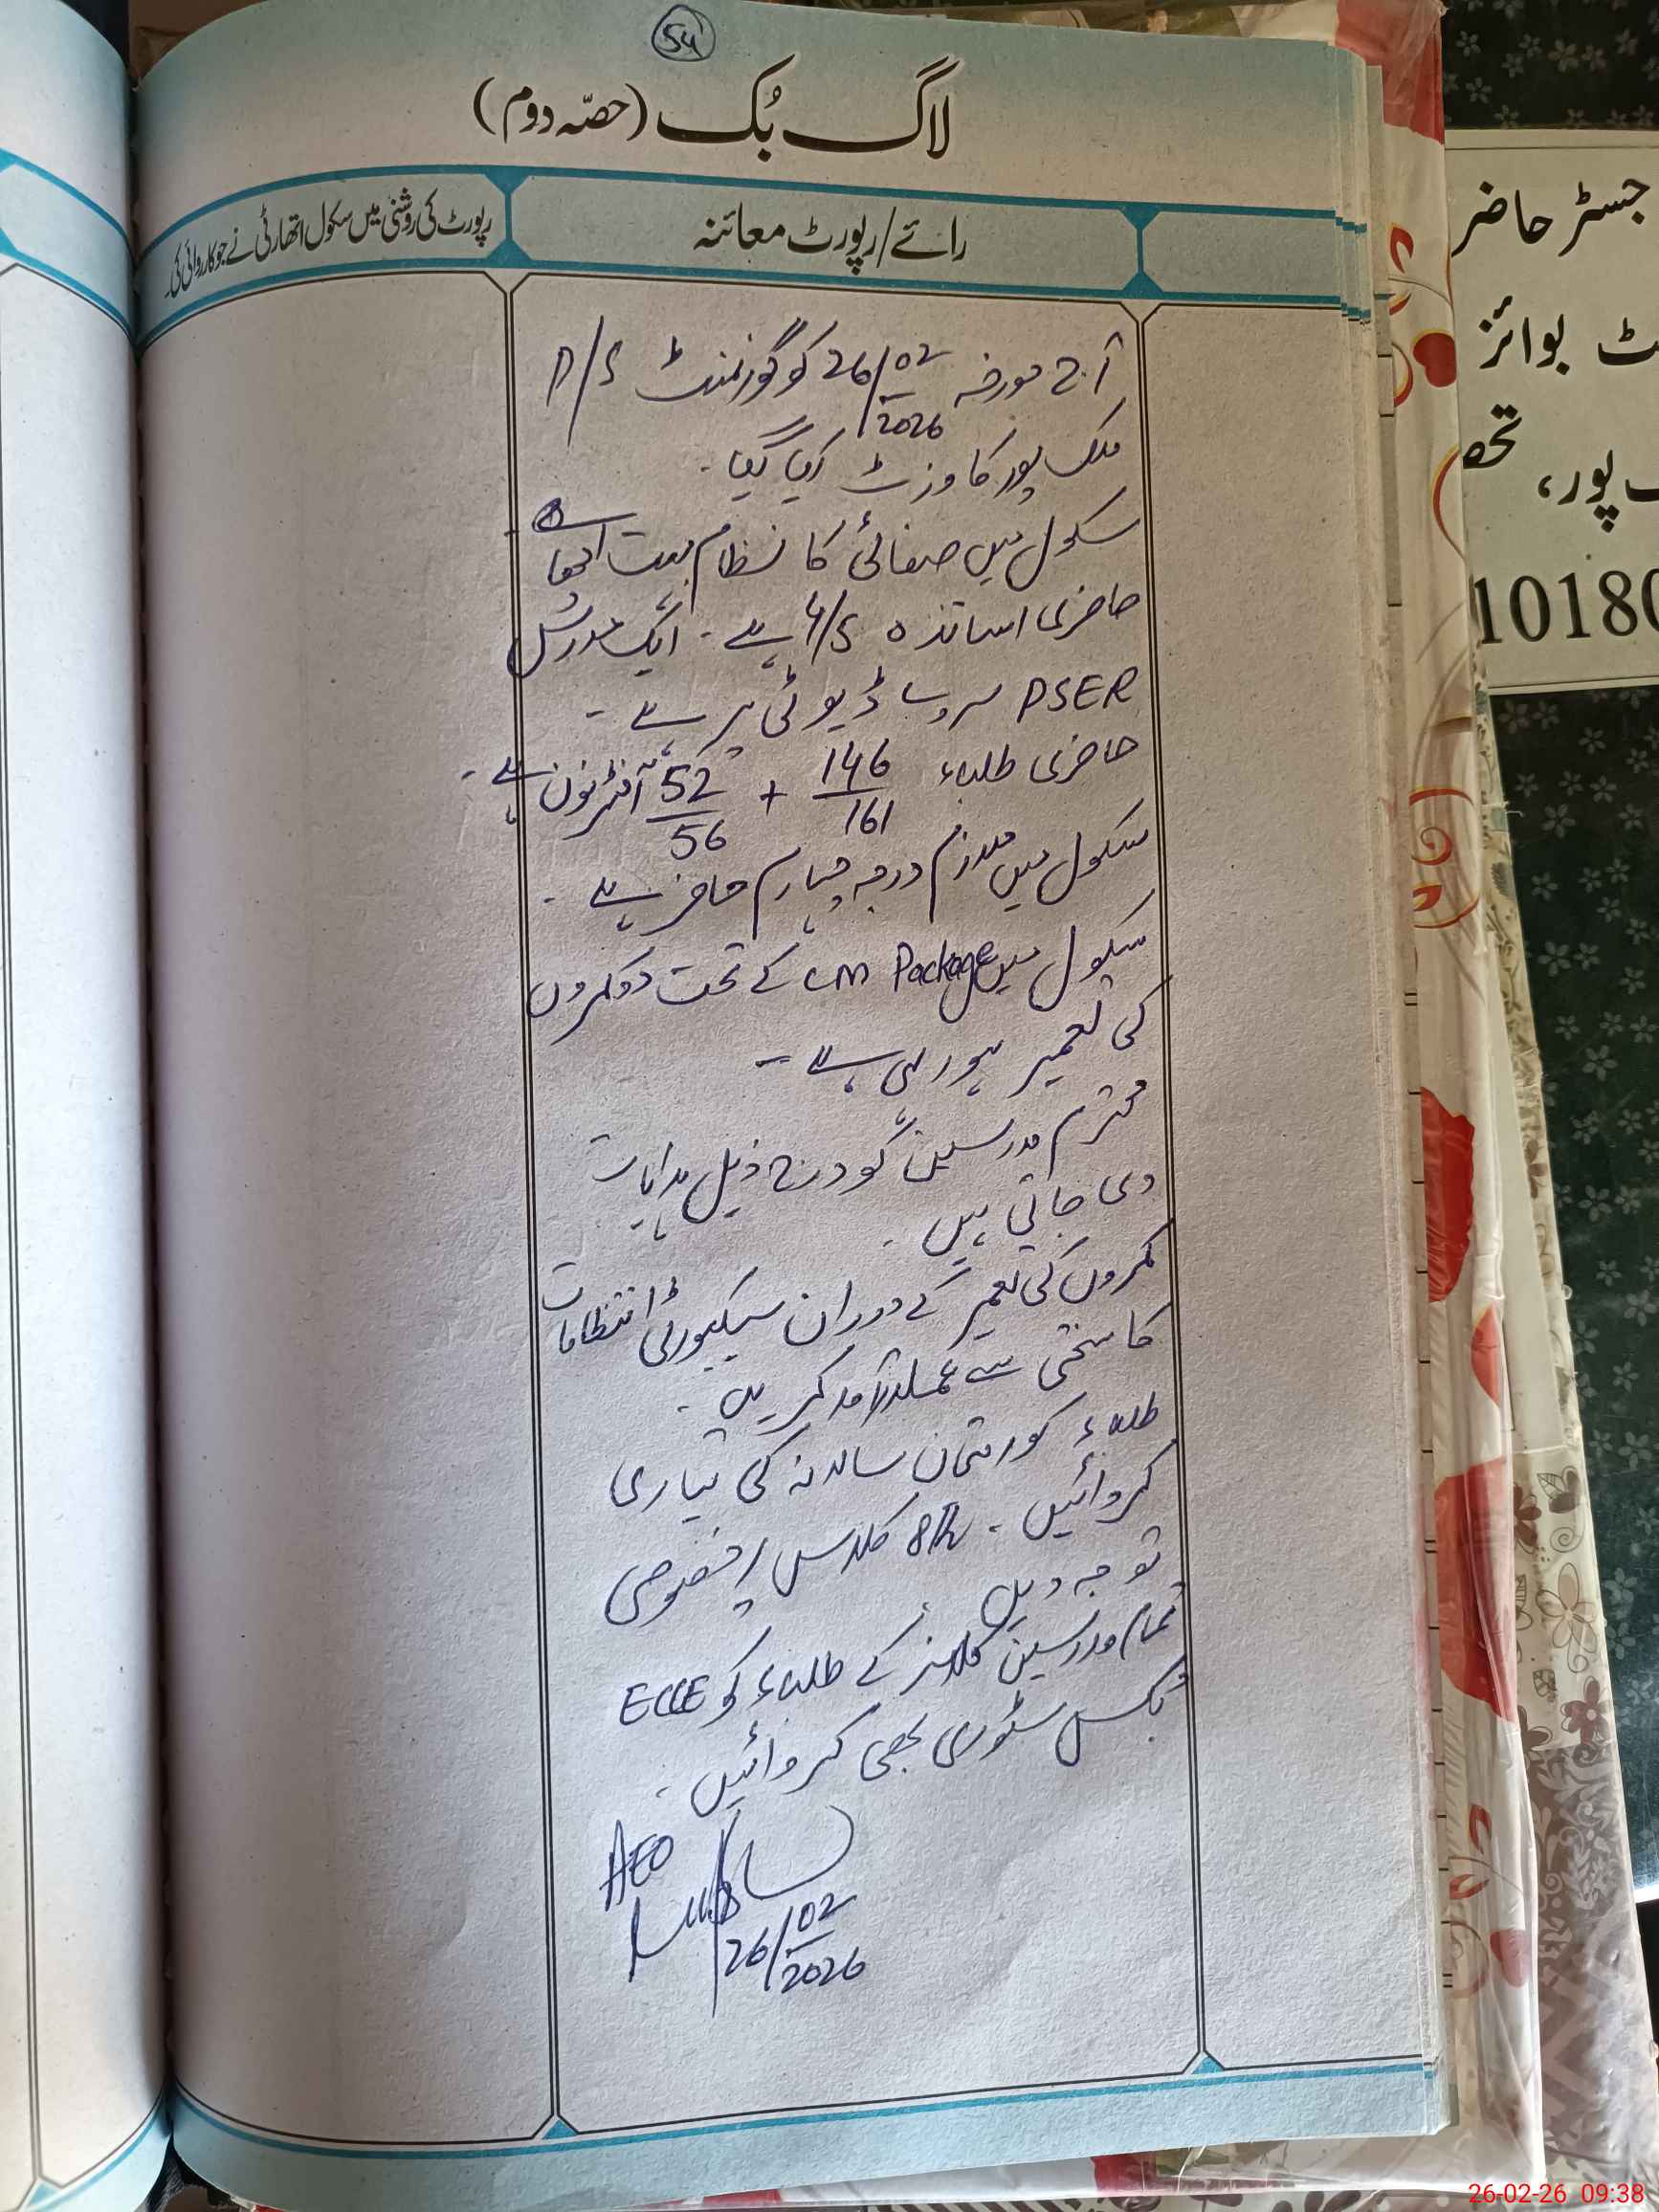 54
لاگ بُک (حصّہ دوم)
رائے/رپورٹ معائنہ
رپورٹ کی روشنی میں سکول اتھارٹی نے جو کارروائی کی۔
آج مورخہ 26/02/2026 کو گورنمنٹ P/S
ملک پور کا وزٹ کیا گیا۔
سکول میں صفائی کا نظام بہت اچھا ہے۔
حاضری اساتذہ 4/5 ہے۔ ایک مدرس
PSER سروے ڈیوٹی پر ہے۔
حاضری طلباء 146/161 + 52/56 آفٹرنون ہے۔
سکول میں ملازم درجہ چہارم حاضر ہے۔
سکول میں CM Package کے تحت دو کمروں
کی تعمیر ہو رہی ہے۔
محترم مدرسین کو درج ذیل ہدایات
دی جاتی ہیں۔
کمروں کی تعمیر کے دوران سیکیورٹی انتظامات
کا سختی سے عملدرآمد کریں۔
طلباء کو امتحان سالانہ کی تیاری
کروائیں۔ 8th کلاس پر خصوصی
توجہ دیں
تمام مدرسین کلاسز کے طلباء کو ECCE
بکس سٹوری بھی کروائیں۔
AEO
26/02/2026
جسٹر حاضر
ٹ بوائز
ب پور، تحص
10180
26-02-26 09:38